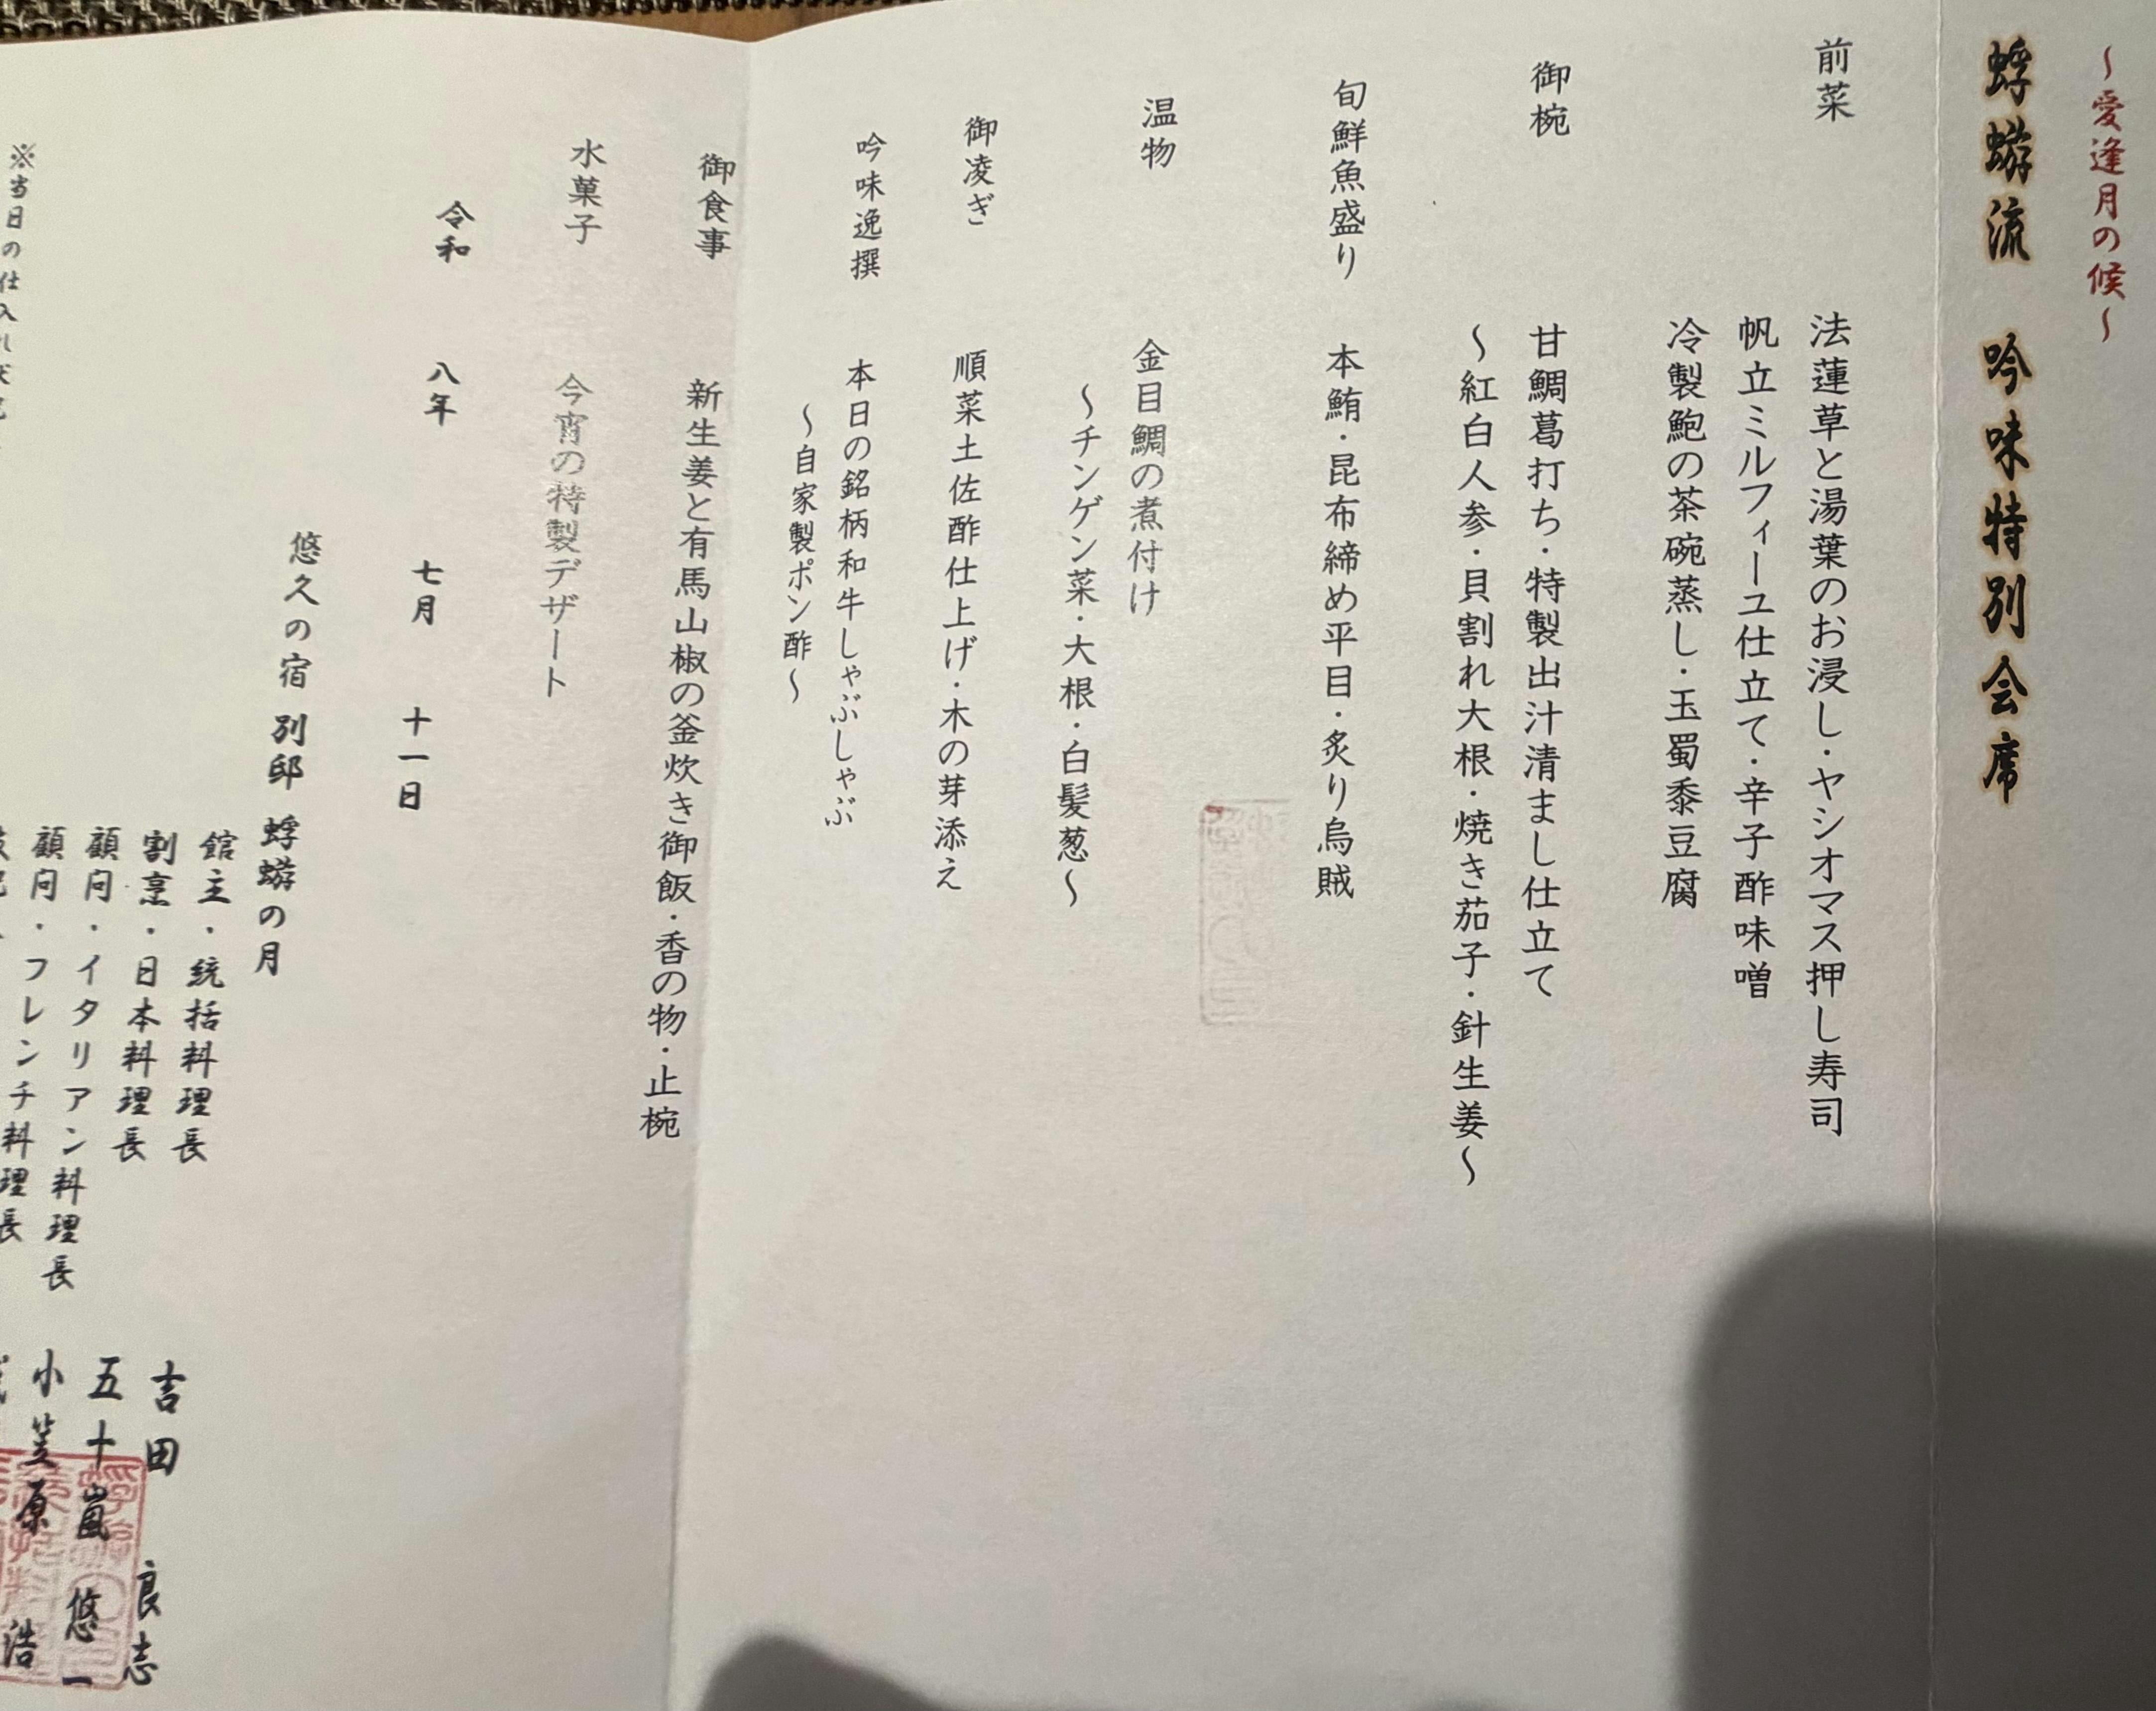 ～愛逢月の候～
蜉蝣流 吟味特別会席
前菜 法蓮草と湯葉のお浸し・ヤシオマス押し寿司
帆立ミルフィーユ仕立て・辛子酢味噌
冷製鮑の茶碗蒸し・玉蜀黍豆腐
御椀 甘鯛葛打ち・特製出汁清まし仕立て
～紅白人参・貝割れ大根・焼き茄子・針生姜～
旬鮮魚盛り 本鮪・昆布締め平目・炙り烏賊
温物 金目鯛の煮付け
～チンゲン菜・大根・白髪葱～
御凌ぎ 順菜土佐酢仕上げ・木の芽添え
吟味逸撰 本日の銘柄和牛しゃぶしゃぶ
～自家製ポン酢～
御食事 新生姜と有馬山椒の釜炊き御飯・香の物・止椀
水菓子 今宵の特製デザート
令和 八年 七月 十一日
悠久の宿 別邸 蜉蝣の月
館主・統括料理長
割烹・日本料理長 吉田 良志
顧問・イタリアン料理長 五十嵐 悠一
顧問・フレンチ料理長 小笠原 浩
※当日の仕入れ